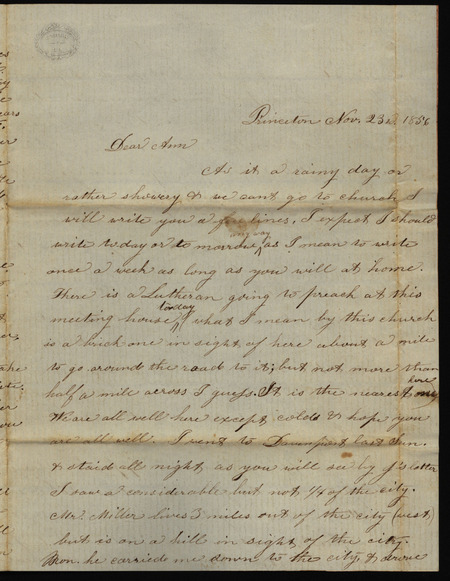 Princeton Nov. 23d 1856
Dear Ann
As it a rainy day or
rather showery & we cant go to church I
will write you a few lines. I expect I should
write to day or to morrow any way as I mean to write
once a week as long as you will at home.
There is a Lutheran going to preach at this
meeting house today, what I mean by this church
is a brick one in sight of here about a mile
to go around the road to it; but not more than
half a mile across I guess. It is the nearest here
We are all well here except colds & hope you
are all well. I went to Davenport last Sun.
& staid all night, as you will see by J's letter
I saw a considerable but not 1/4 of the city.
Mr. Miller lives 3 miles out of the city (west)
but is on a hill in sight of the city.
Mon. he carried me down to the city, & drove